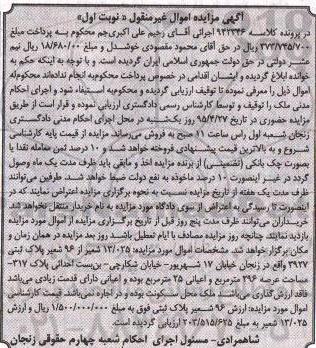 آگهی مزایده اموال غیرمنقول « نوبت اول»
در پرونده کلاسه ۹۴۲۳۴۶ اجرائی آقای رحیم علی اکبری‌جم محکوم به پرداخت مبلغ
۳۷۳/۷۴۵/۷۰۰ ریال در حق آقای محمود مقصودی خوشدل و مبلغ ۱۸/۶۸۰/۰۰۰ ریال نیم
عشر دولتی در حق دولت جمهوری اسلامی ایران گردیده است. و با توجه به اینکه حکم به
خوانده ابلاغ گردیده و ایشان اقدامی در خصوص پرداخت محکوم‌به انجام نداده‌اند محکوم‌له
اموال ذیل را معرفی نموده تا بازداشت و ارزیابی گردیده و محکوم‌به استیفاء شود و اجرای احکام
مدنی ملک را توقیف و توسط کارشناس رسمی دادگستری ارزیابی نموده و قرار است از طریق
مزایده حضوری در تاریخ ۹۵/۴/۲۷ روز یک‌شنبه در محل اجرای احکام مدنی دادگستری
زنجان شعبه اول راس ساعت ۱۱ صبح به فروش می‌رساند. مزایده از قیمت پایه کارشناسی
شروع و به بالاترین قیمت پیشنهادی فروخته خواهد شد و ۱۰ درصد ثمن معامله نقدا یا
بصورت چک بانکی (تضمینی) از برنده مزایده اخذ و مابقی باید ظرف مدت یک ماه وصول
گردد در غیر اینصورت ۱۰ درصد ماخوذه به نفع دولت ضبط خواهد شد. طرفین می‌توانند
ظرف مدت یک هفته از تاریخ مزایده نسبت به نحوه برگزاری مزایده اعتراض نمایند که در
اینصورت تا رسیدگی به اعتراض از سوی دادگاه مورد مزایده به نام خریدار منتقل نخواهد شد.
خریداران می‌توانند ظرف مدت پنج روز قبل از تاریخ برگزاری مزایده از اموال مورد مزایده
بازدید نمایند. چنانچه روز مزایده مصادف با ایام تعطیل باشد روز بعد مزایده در همان زمان و
مکان برگزار خواهد شد. مشخصات اموال مورد مزایده: ۱۳/۰۲۵ شعیر از ۹۶ شعیر پلاک ثبتی
۳۹۲۷ واقع در زنجان خیابان ۱۷ شهریور- خیابان شکارچی- بن‌بست احداثی پلاک ۳۱۷-
مساحت عرصه ۳۹۶ مترمربع و اعیانی ۲۵ مترمربع بوده و اعیانی دارای قدمت زیادی می‌باشد
فاقد ارزش گذاری می‌باشد. ملک محل سکونت بوده و در اجاره نمی‌باشد. قیمت کارشناسی
اموال مورد مزایده: ارزش ۹۶ شعیر پلاک ثبتی فوق به مبلغ ۱/۵۰۰/۰۰۰/۰۰۰ ریال و ارزش
۱۳/۰۲۵ شعیر به مبلغ ۲۰۳/۵۱۵/۶۲۵ ارزیابی گردیده است.
شاهمرادی- مسئول اجرای احکام شعبه چهارم حقوقی زنجان